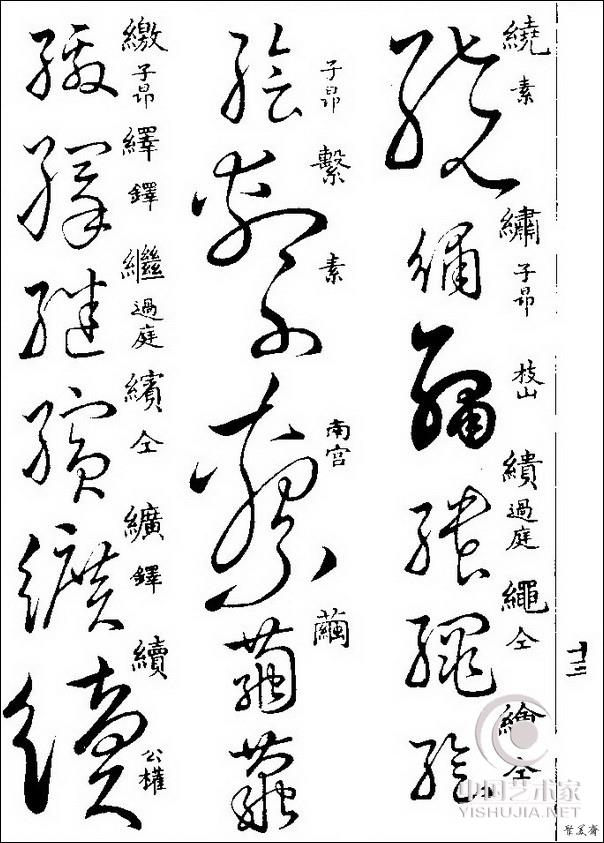 繞 素
繡 子昂
枝山
繢 過庭
繩 仝
繪 仝
子昂
繫 素
南宫
繭
繳 子昂
繹 鐸
繼 過庭
繽 仝
纊 鐸
續 公權
十三
中国艺术家
YISHUJIA.NET